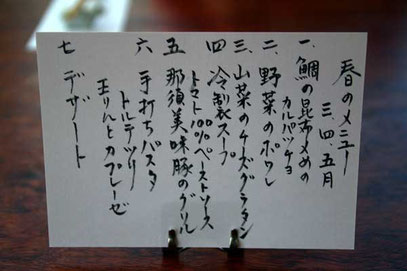 春のメニュー
三、四、五月
一、鯛の昆布〆めの
カルパッチョ
二、野菜のポワレ
三、山菜のチーズグラタン
四 冷製スープ
トマト100%ペーストソース
五 那須美味豚のグリル
六 手打ちパスタ
トルテッリ
玉りんとカプレーゼ
七 デザート